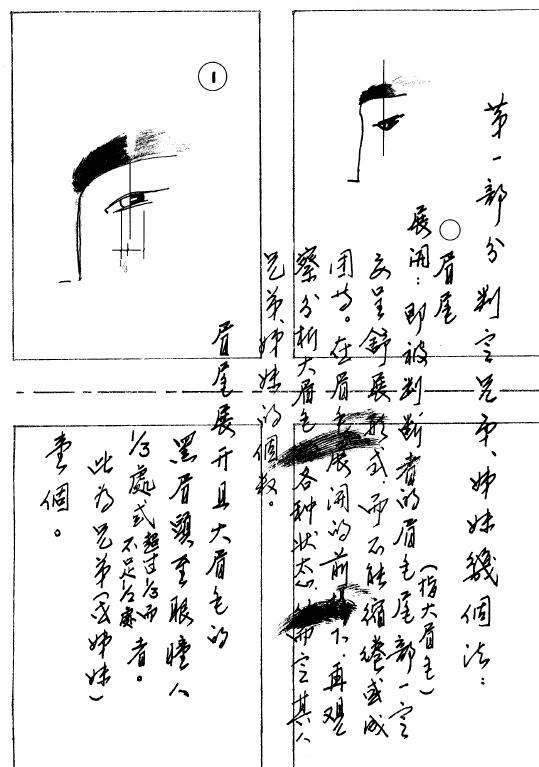 第一部分 判定兄弟、姊妹幾個法：
○ 眉尾
展開：即被判断者的眉毛尾部一定
(指大眉毛)
要呈舒展形式，而不能縮捲或成
团等。在眉毛展開的前 下，再观
察分析大眉毛 各种状态， 而定其人
兄弟、姊妹的個数。
1
眉尾展开且大眉毛的
黑眉頭至眼瞳人
1/3處或超过1/3而
不足1/2處者。
此為兄弟(或姊妹)
壹個。